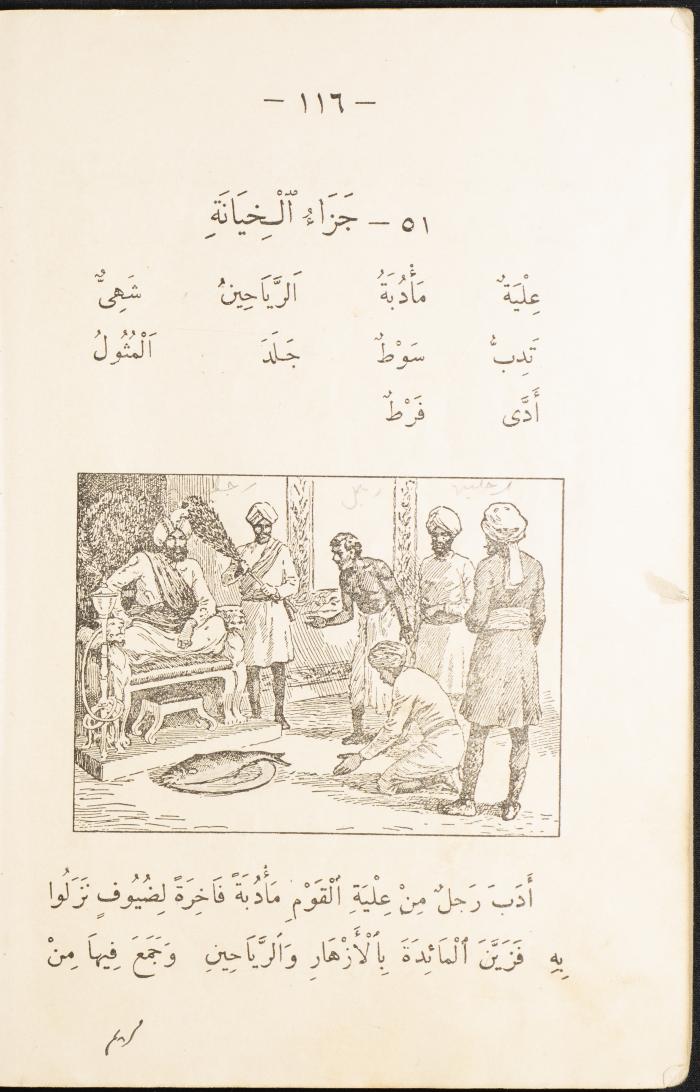 — ١١٦ —
٥١ — جَزَاءُ ٱلْخِيَانَةِ
عِلْيَةٌ مَأْدُبَةٌ اَلرَّيَاحِينُ شَهِيٌّ
تَدِبُّ سَوْطٌ جَلَدَ اَلْمُثُولُ
أَدَّى فَرْطٌ
رجل
أَدَبَ رَجُلٌ مِنْ عِلْيَةِ ٱلْقَوْمِ مَأْدُبَةً فَاخِرَةً لِضُيُوفٍ نَزَلُوا
بِهِ فَزَيَّنَ ٱلْمَائِدَةَ بِٱلْأَزْهَارِ وَٱلرَّيَاحِينِ وَجَمَعَ فِيهَا مِنْ